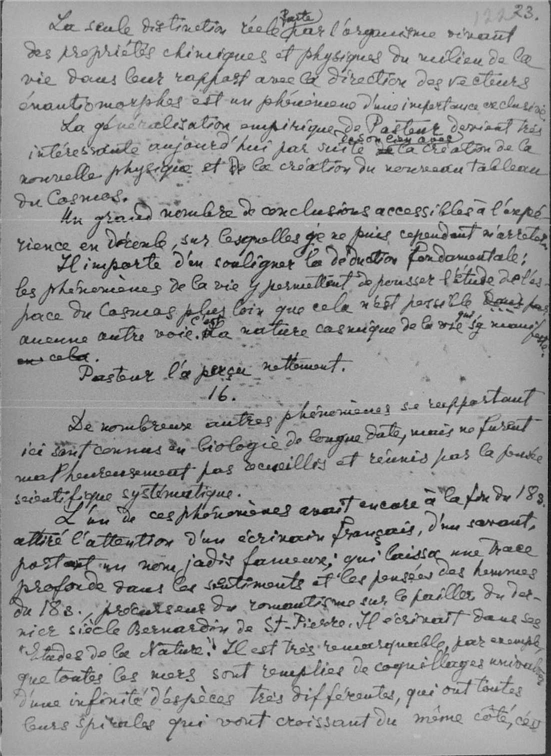 122 23.
La seule distinction réele (faite) par l'organisme vivant
des propriétés chimiques et physiques du milieu de la
vie dans leur rapport avec la direction des vecteurs
énantiomorphes est un phénomène d'une importance exclusive.
La généralisation empirique de Pasteur devient très
intéressante aujourd'hui par suite de son lien avec la création de la
nouvelle physique et de la création du nouveau tableau
du Cosmos.
Un grand nombre de conclusions accessibles à l'expé-
rience en découle, sur lesquelles je ne puis cependant m'arrêter.
Il importe d'en souligner la déduction fondamentale:
les phénomènes de la vie y permettent de pousser l'étude de l'es-
pace du Cosmos plus loin que cela n'est possible par
aucune autre voie. C'est la nature cosmique de la vie qui s'y manifeste.
en cela.
Pasteur l'a perçu nettement.
16.
De nombreux autres phénomènes se rapportant
ici sont connus en biologie de longue date, mais ne furent
malheureusement pas recueillis et réunis par la pensée
scientifique systématique.
L'un de ces phénomènes avait encore à la fin du 18 s.
attiré l'attention d'un écrivain français, d'un savant,
portant un nom, jadis fameux; qui laissa une trace
profonde dans les sentiments et les pensées des hommes
du 18 s., précurseur du romantisme sur le pailler du der-
nier siècle Bernardin de St-Pierre. Il écrivait dans ses
"Etudes de la Nature": Il est très remarquable, par exemple,
que toutes les mers sont remplies de coquillages univalves
d'une infinité d'espèces très différentes, qui ont toutes
leurs spirales qui vont croissant du même côté, c'est